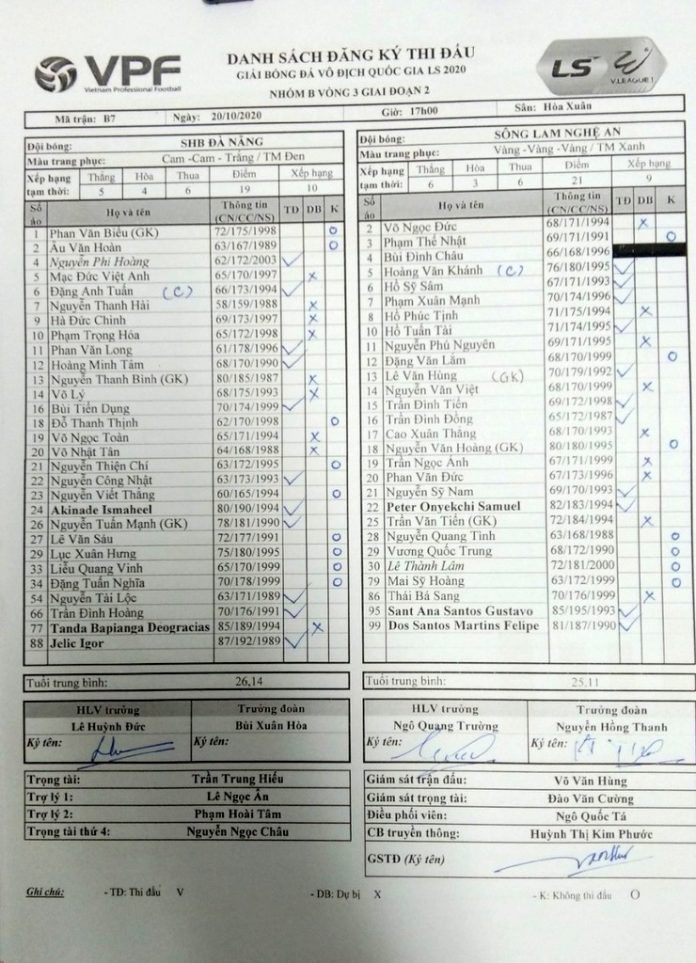 VPF
Vietnam Professional Football
DANH SÁCH ĐĂNG KÝ THI ĐẤU
GIẢI BÓNG ĐÁ VÔ ĐỊCH QUỐC GIA LS 2020
NHÓM B VÒNG 3 GIAI ĐOẠN 2
LS V.LEAGUE 1
Mã trận: B7 Ngày: 20/10/2020 Giờ: 17h00 Sân: Hòa Xuân
Đội bóng: SHB ĐÀ NẴNG
Màu trang phục: Cam -Cam - Trắng / TM Đen
Xếp hạng tạm thời: Thắng Hòa Thua Điểm Xếp hạng
5 4 6 19 10
Số áo Họ và tên Thông tin (CN/CC/NS) TĐ DB K
1 Phan Văn Biểu (GK) 72/175/1998 O
2 Âu Văn Hoàn 63/167/1989 O
4 Nguyễn Phi Hoàng 62/172/2003 V
5 Mạc Đức Việt Anh 65/170/1997 X
6 Đặng Anh Tuấn (C) 66/173/1994 V
7 Nguyễn Thanh Hải 58/159/1988 X
9 Hà Đức Chinh 69/173/1997 X
10 Phạm Trọng Hóa 65/172/1998 X
11 Phan Văn Long 61/178/1996 V
12 Hoàng Minh Tâm 68/170/1990 V
13 Nguyễn Thanh Bình (GK) 80/185/1987 X
14 Võ Lý 68/175/1993 X
16 Bùi Tiến Dụng 70/174/1999 V
18 Đỗ Thanh Thịnh 62/170/1998 O
19 Võ Ngọc Toàn 65/171/1994 X
20 Võ Nhật Tân 64/168/1988 X
21 Nguyễn Thiện Chí 63/172/1995 O
22 Nguyễn Công Nhật 63/173/1993 V
23 Nguyễn Viết Thắng 60/165/1994 O
24 Akinade Ismaheel 80/190/1994 V
26 Nguyễn Tuấn Mạnh (GK) 78/181/1990 V
27 Lê Văn Sáu 72/177/1991 O
29 Lục Xuân Hưng 75/180/1995 O
33 Liễu Quang Vinh 65/170/1999 O
34 Đặng Tuấn Nghĩa 70/178/1999 O
54 Nguyễn Tài Lộc 63/171/1989 V
66 Trần Đình Hoàng 70/176/1991 V
77 Tanda Bapianga Deogracias 85/189/1994 X
88 Jelic Igor 87/192/1989 V
Tuổi trung bình: 26,14
HLV trưởng Trưởng đoàn
Lê Huỳnh Đức Bùi Xuân Hòa
Ký tên: Ký tên:
Trọng tài: Trần Trung Hiếu
Trợ lý 1: Lê Ngọc Ân
Trợ lý 2: Phạm Hoài Tâm
Trọng tài thứ 4: Nguyễn Ngọc Châu
Đội bóng: SÔNG LAM NGHỆ AN
Màu trang phục: Vàng -Vàng -Vàng / TM Xanh
Xếp hạng tạm thời: Thắng Hòa Thua Điểm Xếp hạng
6 3 6 21 9
Số áo Họ và tên Thông tin (CN/CC/NS) TĐ DB K
2 Võ Ngọc Đức 68/171/1994 X
3 Phạm Thế Nhật 69/171/1991 O
4 Bùi Đình Châu 66/168/1996
5 Hoàng Văn Khánh (C) 76/180/1995 V
6 Hồ Sỹ Sâm 67/171/1993 V
7 Phạm Xuân Mạnh 70/174/1996 V
8 Hồ Phúc Tịnh 71/175/1994 X
10 Hồ Tuấn Tài 71/174/1995 V
11 Nguyễn Phú Nguyên 69/171/1995 X
12 Đặng Văn Lắm 68/170/1999 O
13 Lê Văn Hùng (GK) 70/179/1992 V
14 Nguyễn Văn Việt 68/170/1999 X
15 Trần Đình Tiến 69/172/1998 V
16 Trần Đình Đồng 65/172/1987 V
17 Cao Xuân Thắng 68/170/1993 X
18 Nguyễn Văn Hoàng (GK) 80/180/1995 O
19 Trần Ngọc Ánh 67/171/1999 X
20 Phan Văn Đức 67/173/1996 X
21 Nguyễn Sỹ Nam 69/170/1993 V
22 Peter Onyekchi Samuel 82/183/1994 V
25 Trần Văn Tiến (GK) 72/184/1994 X
28 Nguyễn Quang Tình 63/168/1988 O
29 Vương Quốc Trung 68/172/1990 O
30 Lê Thành Lâm 72/181/2000 O
79 Mai Sỹ Hoàng 63/172/1999 O
86 Thái Bá Sang 70/176/1999 X
95 Sant Ana Santos Gustavo 85/195/1993 V
99 Dos Santos Martins Felipe 81/187/1990 V
Tuổi trung bình: 25,11
HLV trưởng Trưởng đoàn
Ngô Quang Trường Nguyễn Hồng Thanh
Ký tên: Ký tên:
Giám sát trận đấu: Võ Văn Hùng
Giám sát trọng tài: Đào Văn Cường
Điều phối viên: Ngô Quốc Tá
CB truyền thông: Huỳnh Thị Kim Phước
GSTĐ (Ký tên)
Ghi chú: - TĐ: Thi đấu V - DB: Dự bị X - K: Không thi đấu O